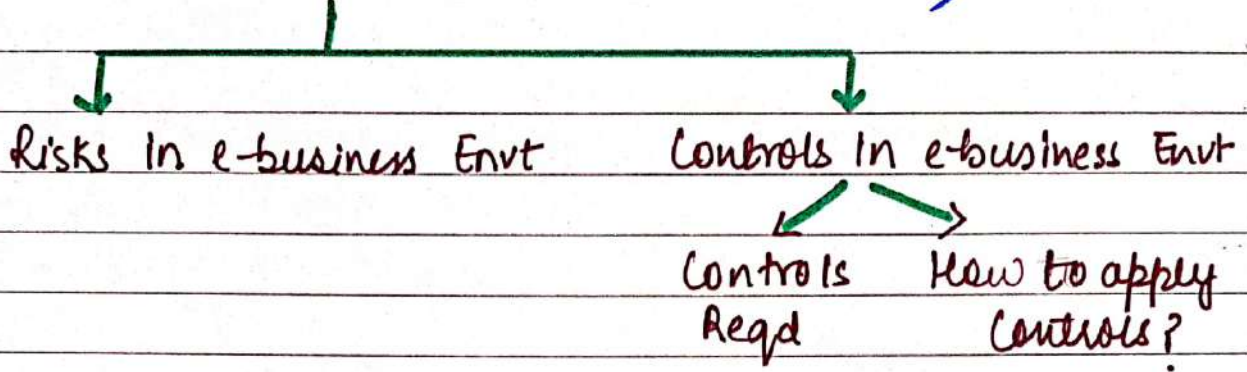 Risks In e-business Envt Controls In e-business Envt
Controls How to apply
Reqd Controls?